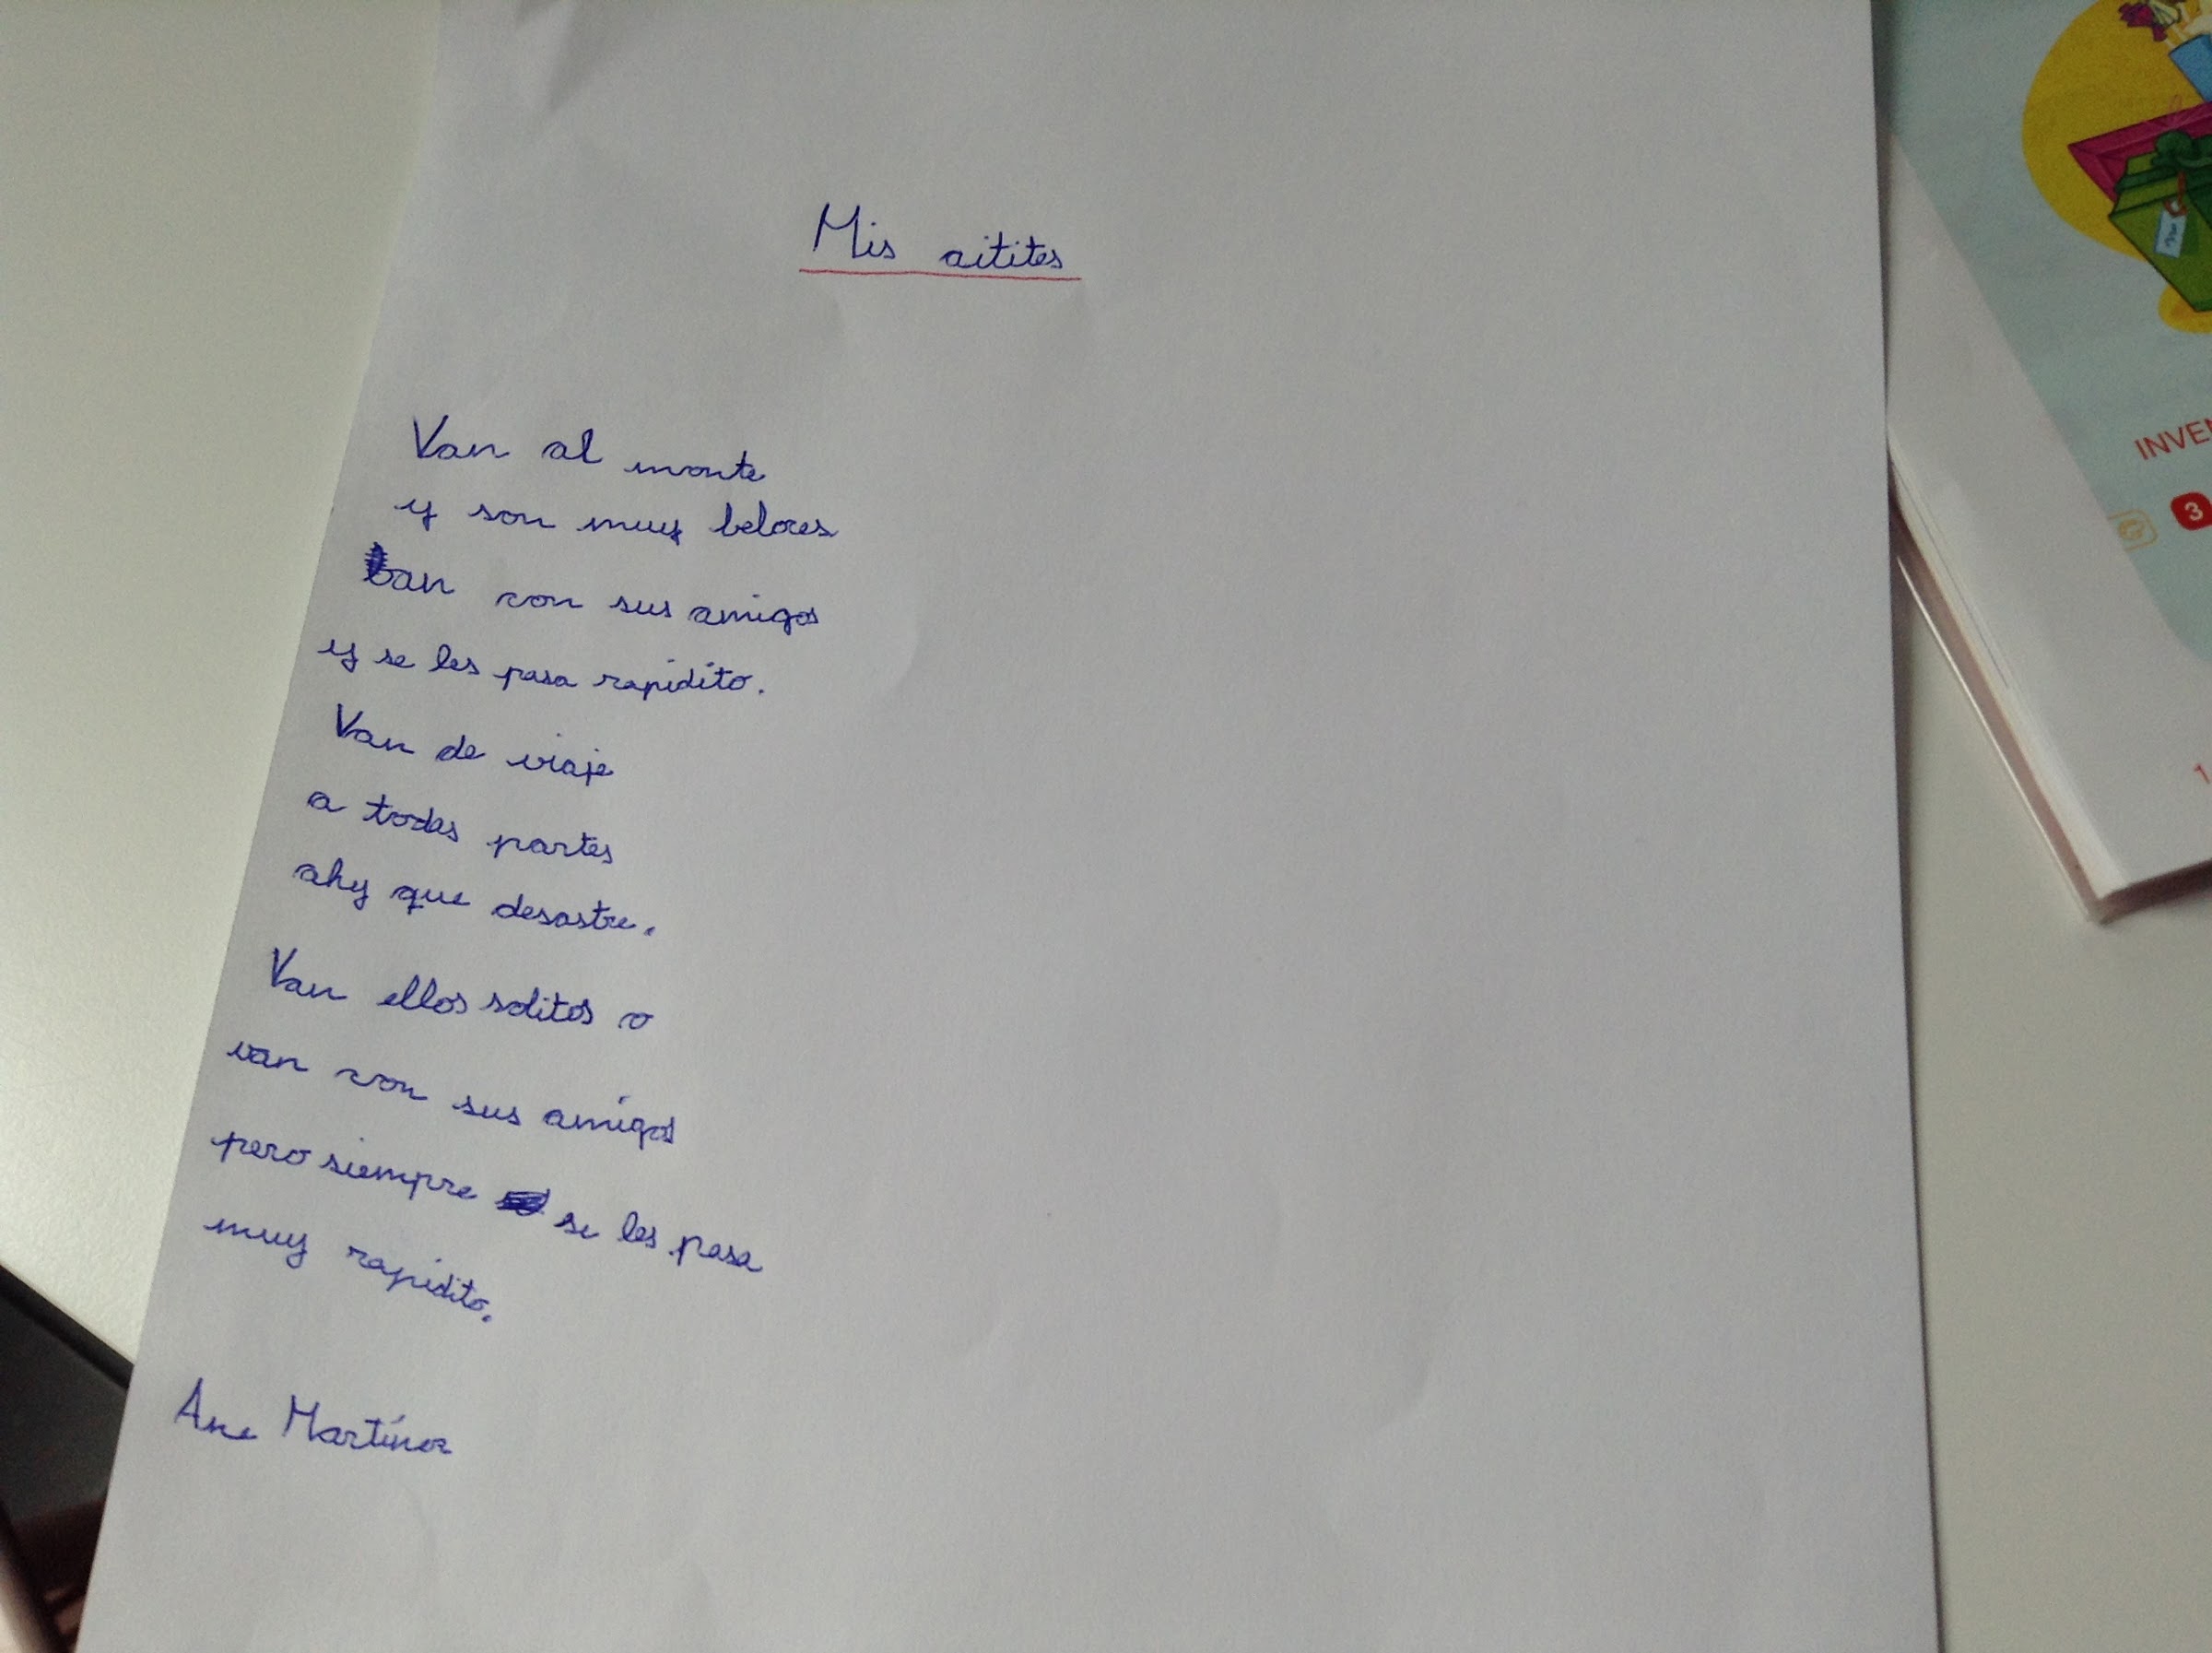 Mis aitites
Van al monte
y son muy beloces
ban con sus amigos
y se les pasa rapidito.
Van de viaje
a todas partes
ahy que desastre.
Van ellos solitos o
van con sus amigos
pero siempre se les pasa
muy rapidito.
Ane Martínez
3
1